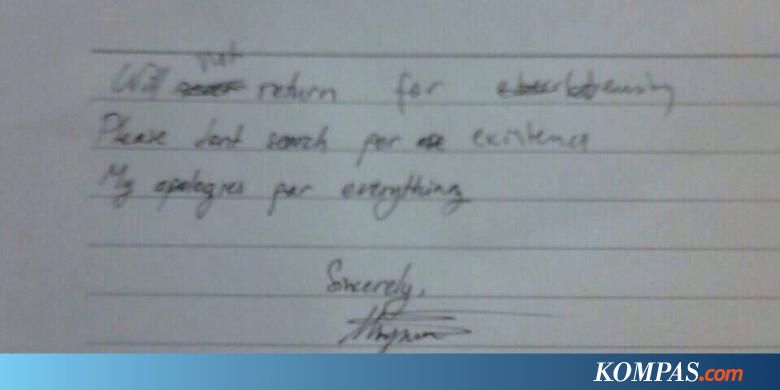 Will not return for
Please dont search for existence
My apologies for everything
Sincerely,
KOMPAS.com